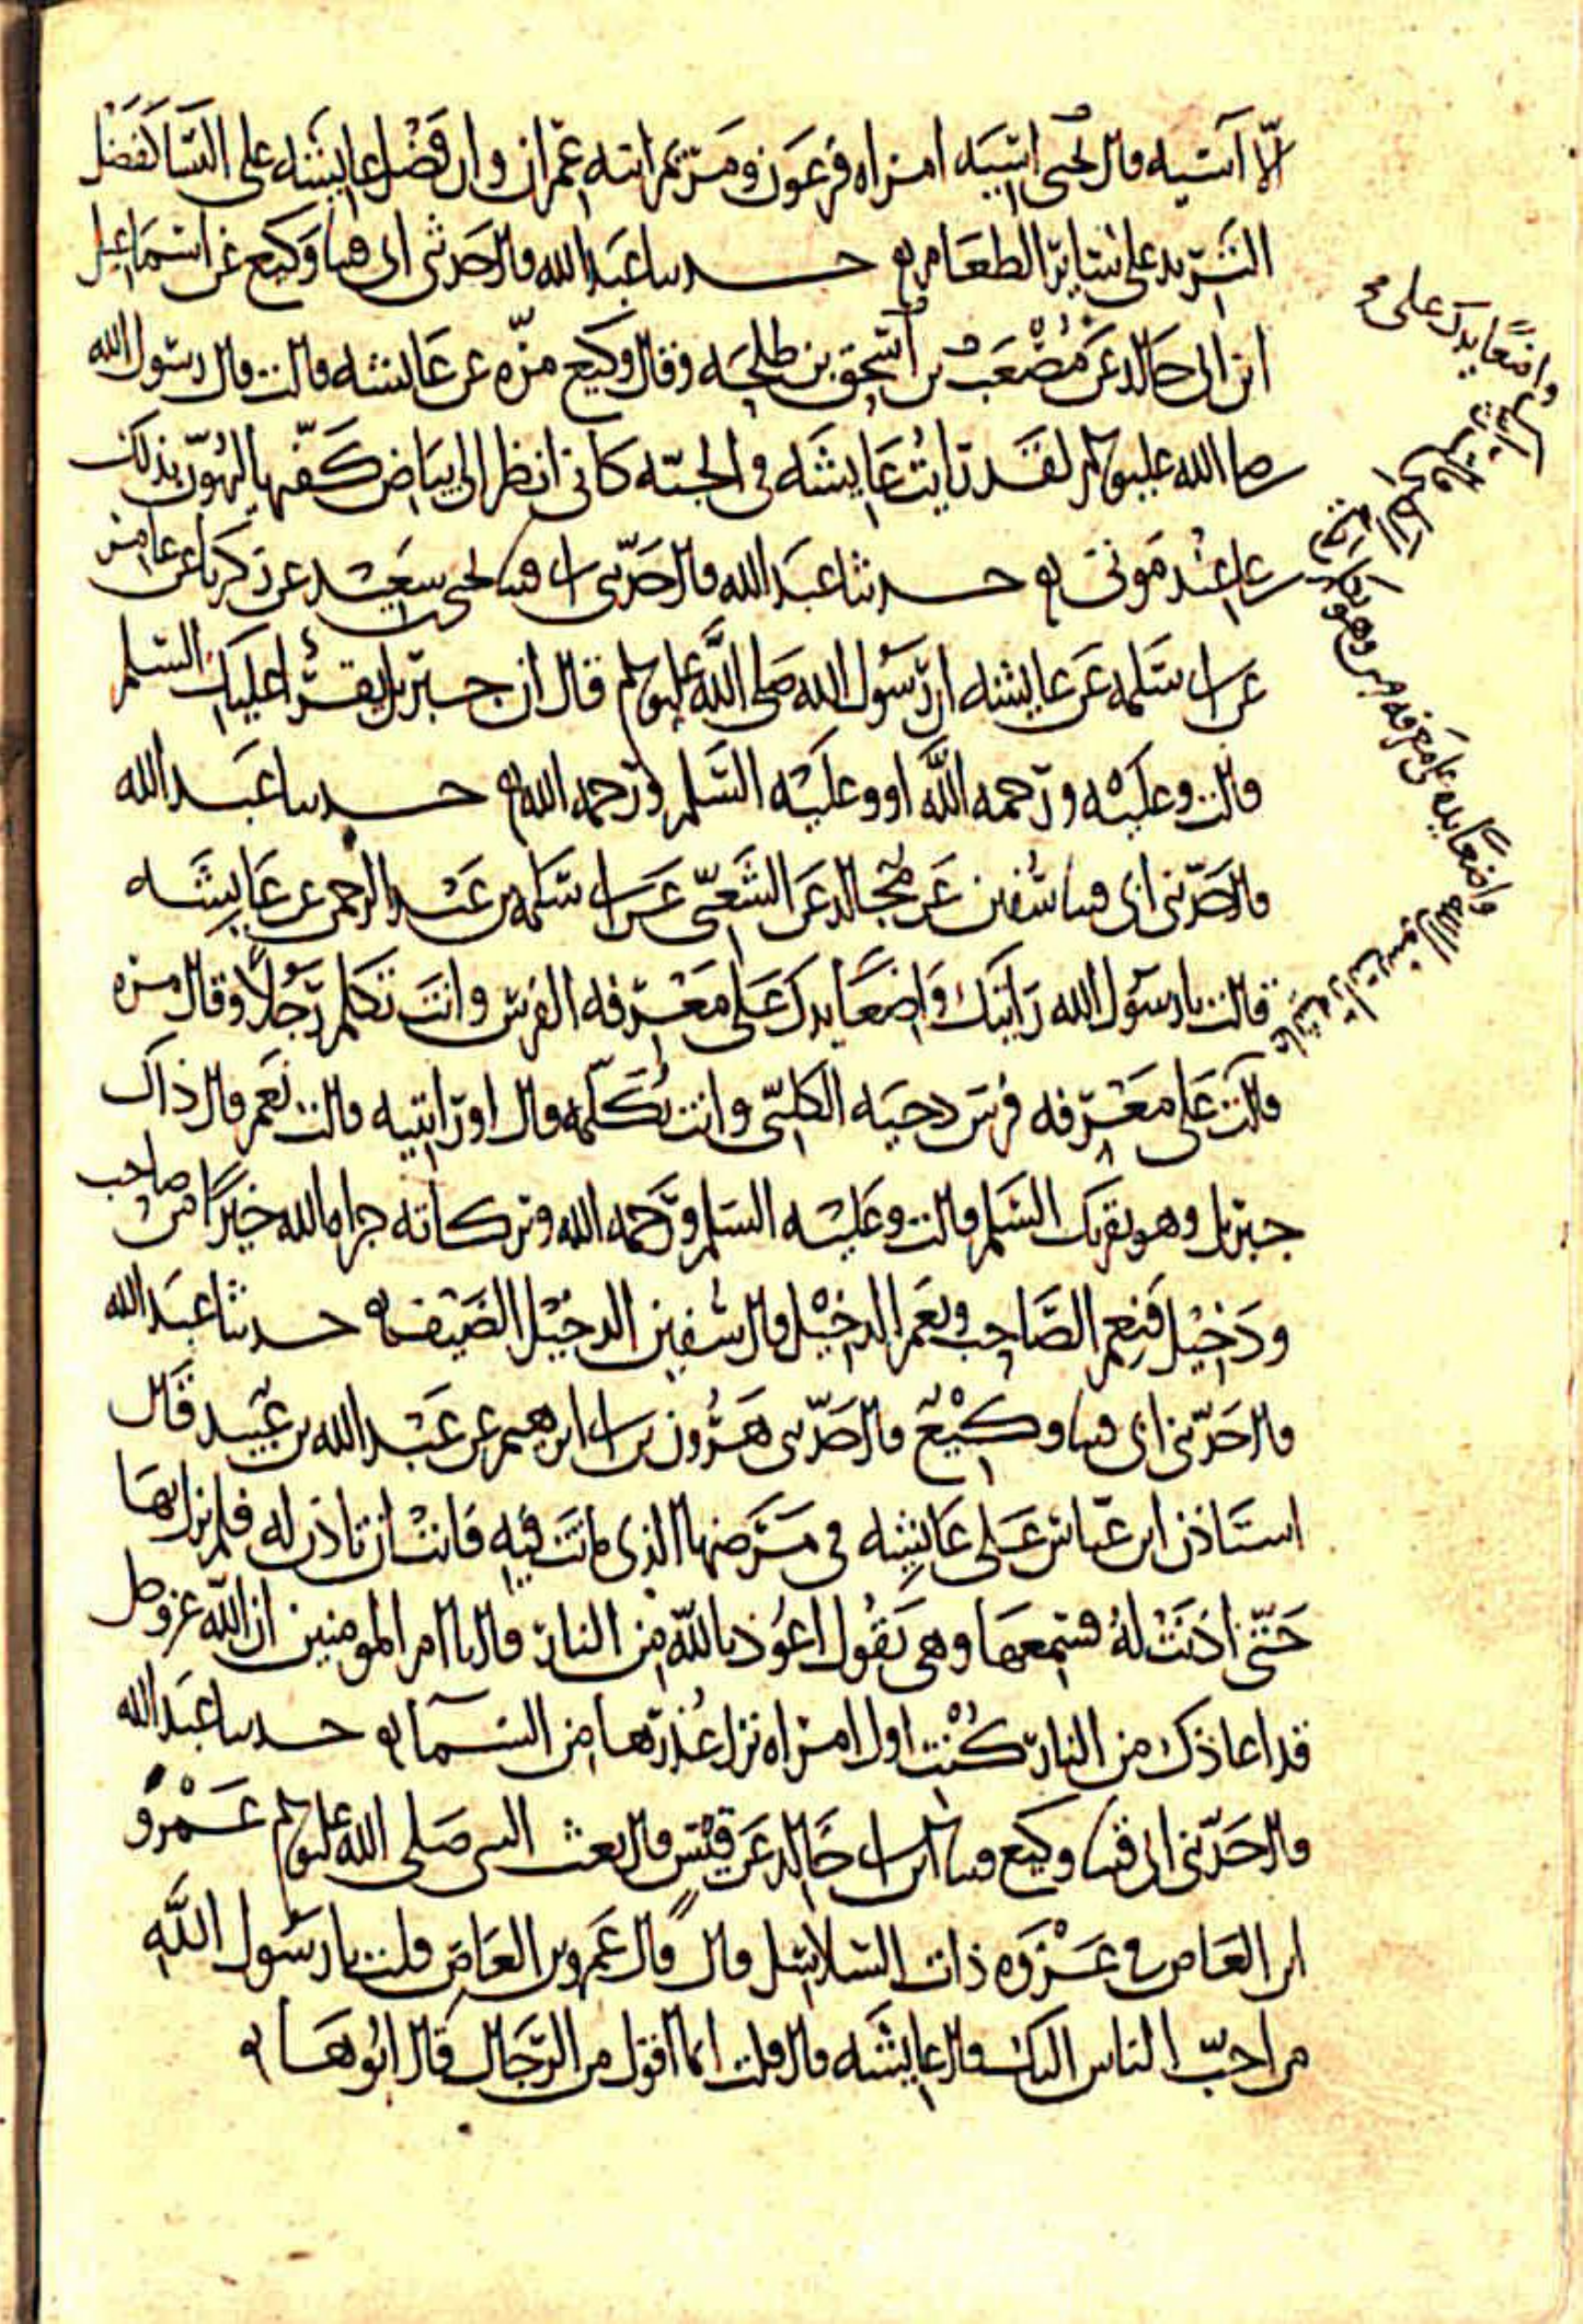 الا آسيه قال يحيى آسيه امراه فرعون ومريم ابنه عمران وان فضل عايشه على النسا كفضل
الثريد على ساير الطعام حدثنا عبد الله قال حدثني ابي قثنا وكيع عن اسماعيل
ابن ابي خالد عن مصعب بن اسحق بن طلحه وقال وكيع مره عن عايشه قالت قال رسول الله
صلى الله عليه وسلم لقد رايت عايشه في الجنه كاني انظر الى بياض كفيها ليهون بذلك
علي عند موتي حدثنا عبد الله قال حدثني ابي قثنا يحيى بن سعيد عن زكريا عن عامر
عن ابي سلمه عن عايشه ان رسول الله صلى الله عليه وسلم قال ان جبريل يقرا عليك السلم
قالت وعليه ورحمه الله او وعليه السلم ورحمه الله حدثنا عبد الله
قال حدثني ابي قثنا سفين عن مجالد عن الشعبي عن ابي سلمه بن عبد الرحمن عن عايشه
قالت يا رسول الله رايتك واضعا يدك على معرفه الفرس وانت تكلم رجلا وقال مره
قالت على معرفه فرس دحيه الكلبي وانت تكلمه قال اورايتيه قالت نعم قال ذاك
جبريل وهو يقريك السلم قالت وعليه السلم ورحمه الله وبركاته جزاه الله خيرا من صاحب
ودخيل فنعم الصاحب ونعم الدخيل قال سفين الدخيل الضيف حدثنا عبد الله
قال حدثني ابي قثنا وكيع قال حدثني هرون بن ابي ابرهيم عن عبد الله بن عبيد قال
استاذن ابن عباس على عايشه في مرضها الذي ماتت فيه فابت ان تاذن له فلم يزل بها
حتى اذنت له فسمعها وهي تقول اعوذ بالله من النار قال يا ام المومنين ان الله عز وجل
قد اعاذك من النار كنت اول امراه نزل عذرها من السما حدثنا عبد الله
قال حدثني ابي قثنا وكيع قثنا ابن ابي خالد عن قيس قال بعث النبي صلى الله عليه وسلم عمرو
ابن العاص في غزوه ذات السلاسل قال قال عمرو بن العاص قلت يا رسول الله
من احب الناس اليك قال عايشه قال قلت انما اقول من الرجال قال ابوها
واضعا يدك على
واضعا يده على معرفه فرس وهو